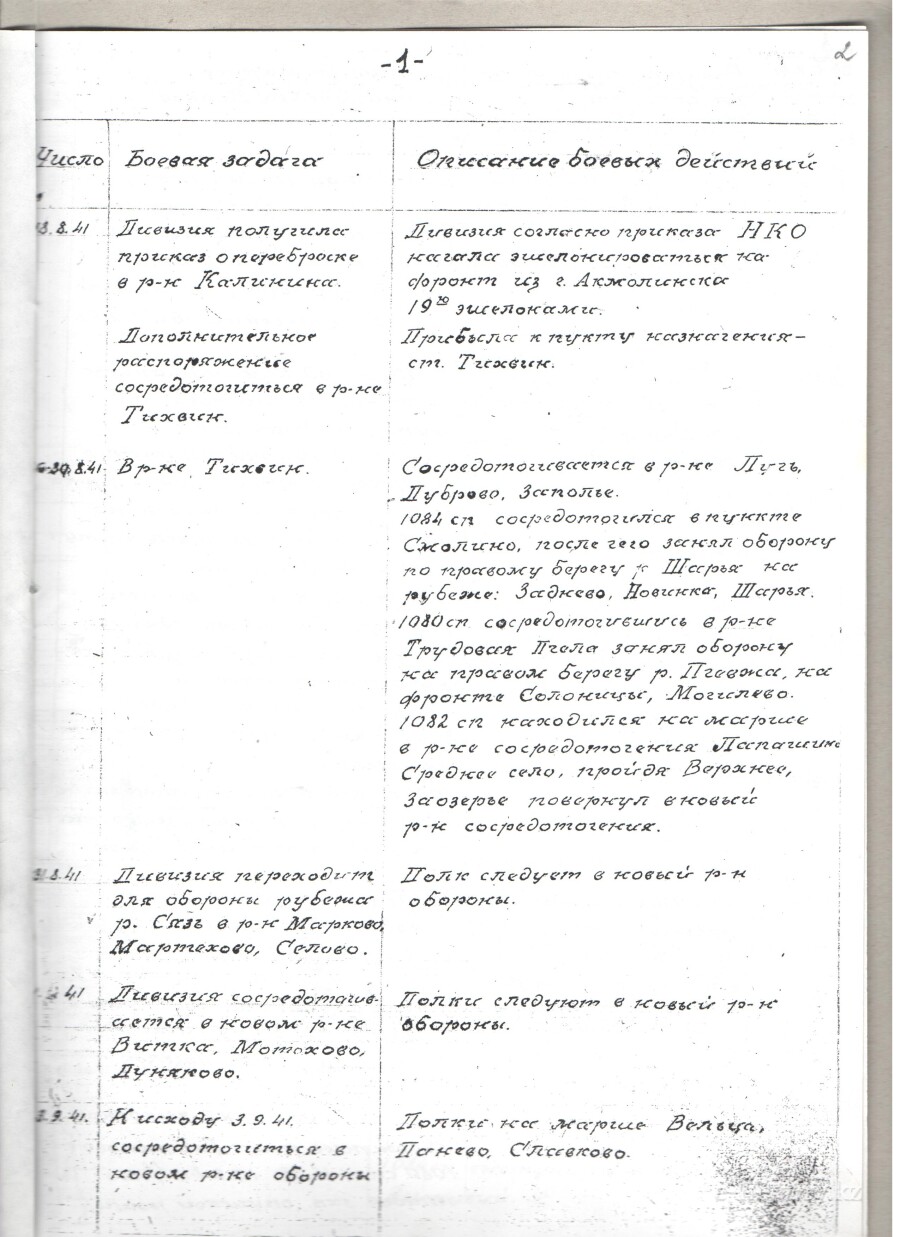 -1-
2
Число
Боевая задача
Описание боевых действий
8.8.41
Дивизия получила
приказ о переброске
в р-н Калинина.
Дополнительное
распоряжение
сосредоточиться в р-не
Тихвин.
Дивизия согласно приказа НКО
начала эшелонироваться на
фронт из г. Акмолинска
19 эшелонами.
Прибыла к пункту назначения-
ст. Тихвин.
8.41.
В р-не Тихвин.
Сосредотачивается в р-не Лугь,
Дуброво, Заполье.
1084 сп сосредоточился в пункте
Смолино, после чего занял оборону
по правому берегу р Шарья на
рубеже: Заднево, Новинка, Шарья.
1080 сп сосредоточившись в р-не
Трудовая Пчела занял оборону
на правом берегу р. Пчевжа, на
фронте Солоницы, Могилево.
1082 сп находился на марше
в р-не сосредоточения
Среднее село, пройдя Верхнее,
Заозерье повернул в новый
р-н сосредоточения.
31.8.41
Дивизия переходит
для обороны рубежа
р. Сязь в р-н Марково,
Мартехово, Селово.
Полк следует в новый р-н
обороны.
41
Дивизия сосредотачив-
ается в новом р-не
Витка, Мотохово,
Дуняково.
Полки следуют в новый р-н
обороны.
3.9.41.
К исходу 3.9.41.
сосредоточиться в
новом р-не обороны
Полки на марше Вельца,
Панево, Славково.